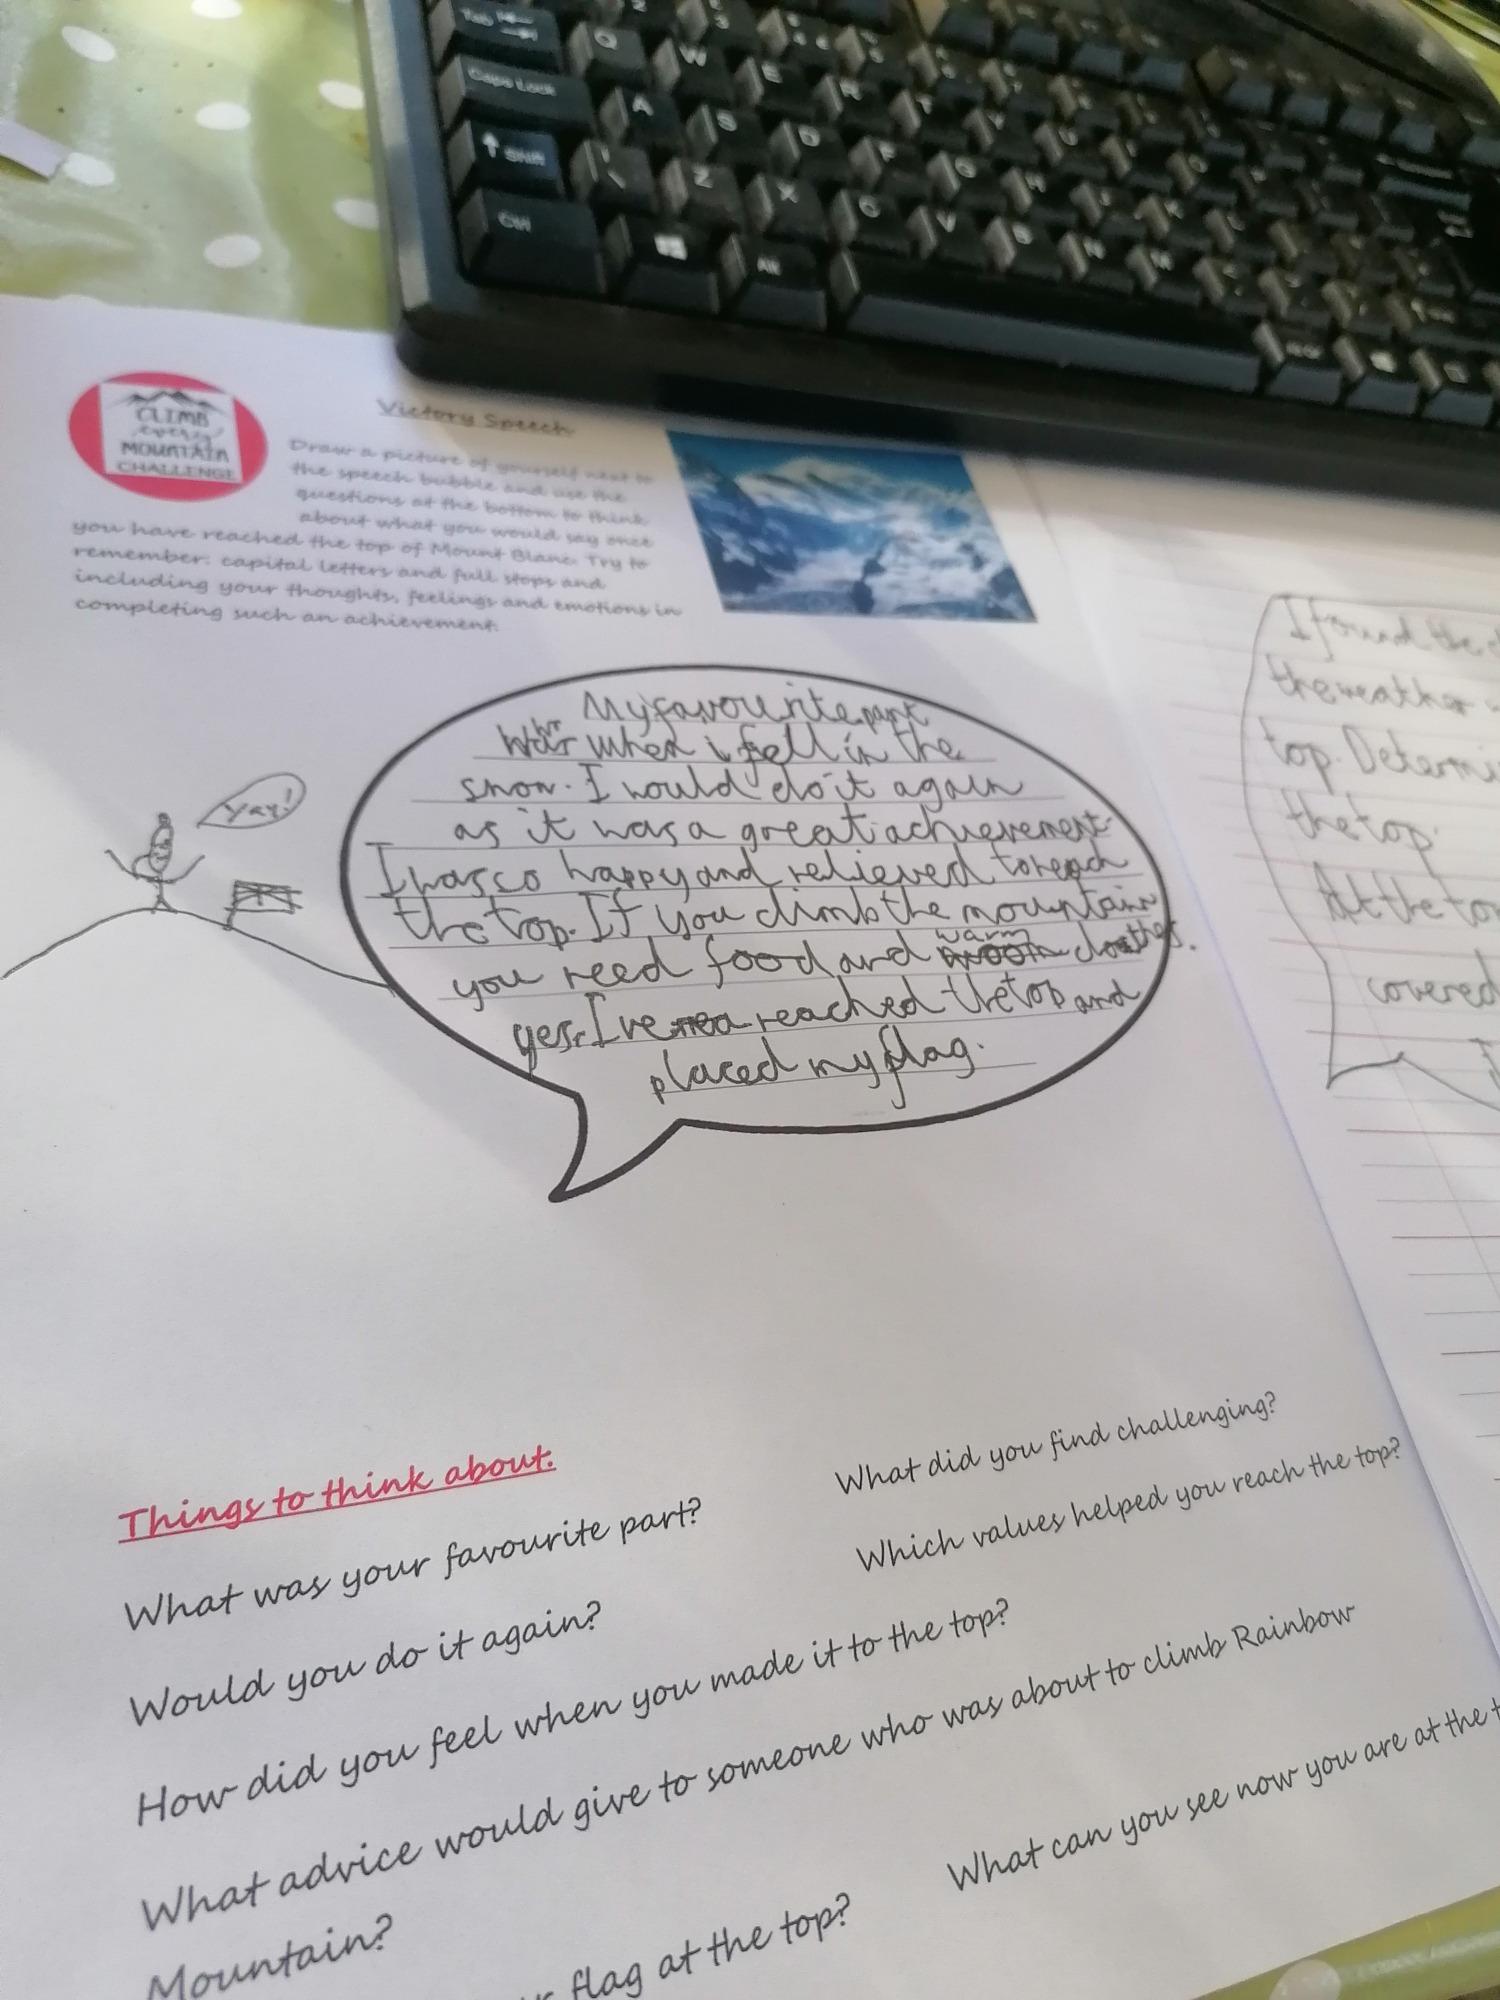 Tab
Q W E R T
Caps Lock
A S D F G H
Shift
\ Z X C V B N M
Ctrl
Alt
CLIMB
every
MOUNTAIN
CHALLENGE
Victory Speech
Draw a picture of yourself next to
the speech bubble and use the
questions at the bottom to think
about what you would say once
you have reached the top of Mount Blanc. Try to
remember: capital letters and full stops and
including your thoughts, feelings and emotions in
completing such an achievement.
yay!
My favourite part
when i fell in the
snow. I would do it again
as it was a great achievement.
I was so happy and relieved to reach
the top. If you climb the mountain
you need food and warm clothes.
yes. I've reached the top and
placed my flag.
I found the
the weather
top. Determi
the top.
At the to
covered
Things to think about.
What was your favourite part?
What did you find challenging?
Would you do it again?
Which values helped you reach the top?
How did you feel when you made it to the top?
What advice would give to someone who was about to climb Rainbow
Mountain?
What can you see now you are at the t
flag at the top?